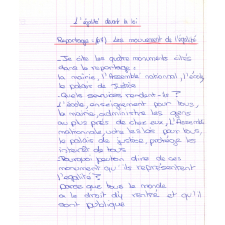 L'égalité devant la loi
Reportage: Les mouvement de l'égalité
- Je cite les quatre monuments cités
dans le reportage:
la mairie, l'Assemblé nationnal, l'école
le palais de justice
- Quels services rendent-ils?
L'école, enseignement pour tous,
la mairie, administre les gens
au plus près de chez eux, L'Assemblé
nationnale, vote les lois pour tous,
le palais de justice, protège les
interêt de tous
- Pourquoi peut-on dire de ces
monument qu'ils représentent
l'égalité?
Parce que tous le monde
a le droit d'y rentré et qu'il
sont publique